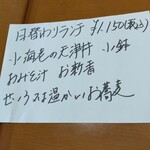 日替わりランチ ¥1.150(税込)
小海老の天津丼 小鉢
おみそ汁 お新香
せいろ又は温かいお蕎麦